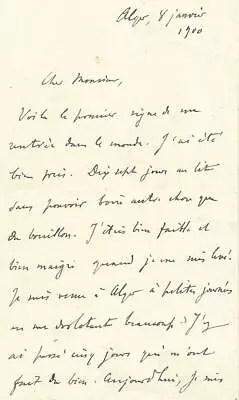 Alger, 8 janvier
1900
Cher Monsieur,
Voilà le premier signe de ma
rentrée dans le monde. J'ai été
bien pris. Dix sept jours au lit
sans pouvoir boire autre chose que
du bouillon. J'étais bien faible et
bien maigri quand je me suis levé.
Je suis venu à Alger à petites journées
en me dorlotant beaucoup. J'y
ai passé cinq jours qui m'ont
fait du bien. Aujourd'hui, je suis